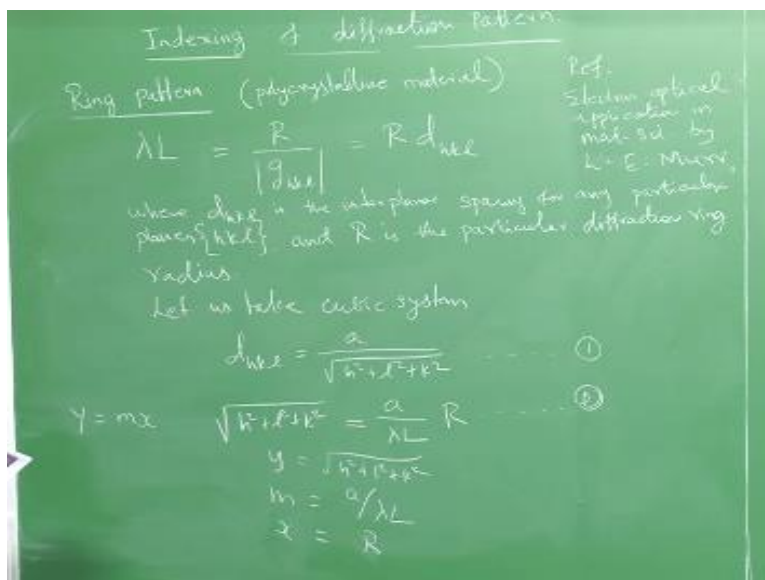 Indexing of diffraction Pattern.
Ring pattern (polycrystalline material)
Ref.
Electron optical
application in
mat. sci by
L. E. Murr,
λL = R / |g_hkl| = R d_hkl
where d_hkl is the interplanar spacing for any particular
planes {hkl} and R is the particular diffraction ring
radius
Let us take cubic system
d_hkl = a / √(h²+l²+k²) ..... ①
y = mx √(h²+l²+k²) = a/λL R ..... ②
y = √(h²+l²+k²)
m = a/λL
x = R